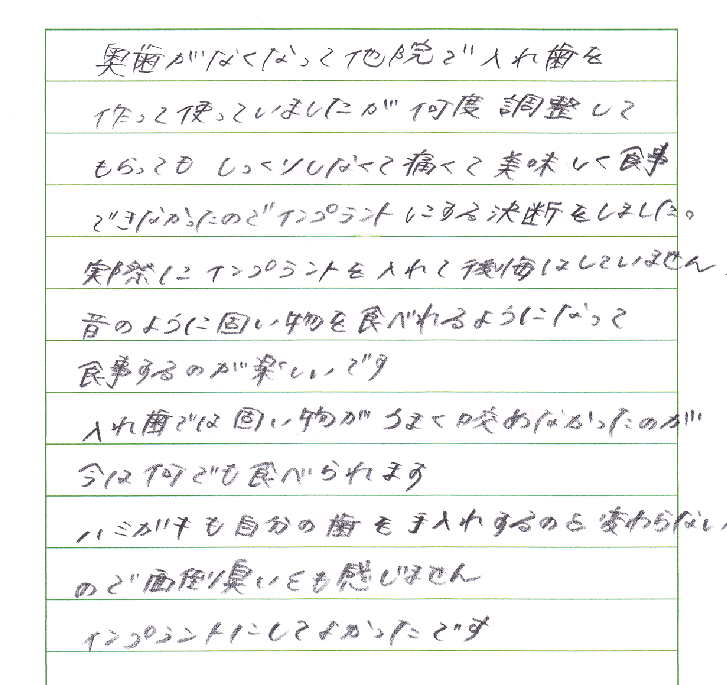 奥歯がなくなって他院で入れ歯を
作って使っていましたが何度調整して
もらっても しっくりしなくて痛くて美味しく食事
できなかったのでインプラントにする決断をしました。
実際にインプラントを入れて後悔はしていません.
昔のように固い物を食べれるようになって
食事するのが楽しいです
入れ歯では固い物がうまく咬めなかったのが
今は何でも食べられます
ハミガキも自分の歯を手入れするのと変わらない
ので面倒臭いとも感じません
インプラントにしてよかったです